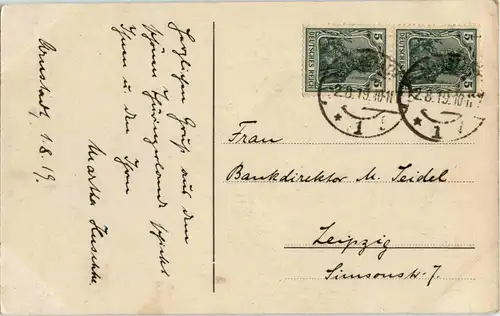 Arnstadt, 1.8.19.
Herzlichen Gruß aus dem
schönen Thüringerlande
Ihnen u. den Ihren
Martha
5 DEUTSCHES REICH 5
5 DEUTSCHES REICH 5
2.8.19.10-11
* 1
2.8.19.10-11
* 1
Frau
Bankdirektor M. Seidel
Leipzig
Simsonstr. 7.